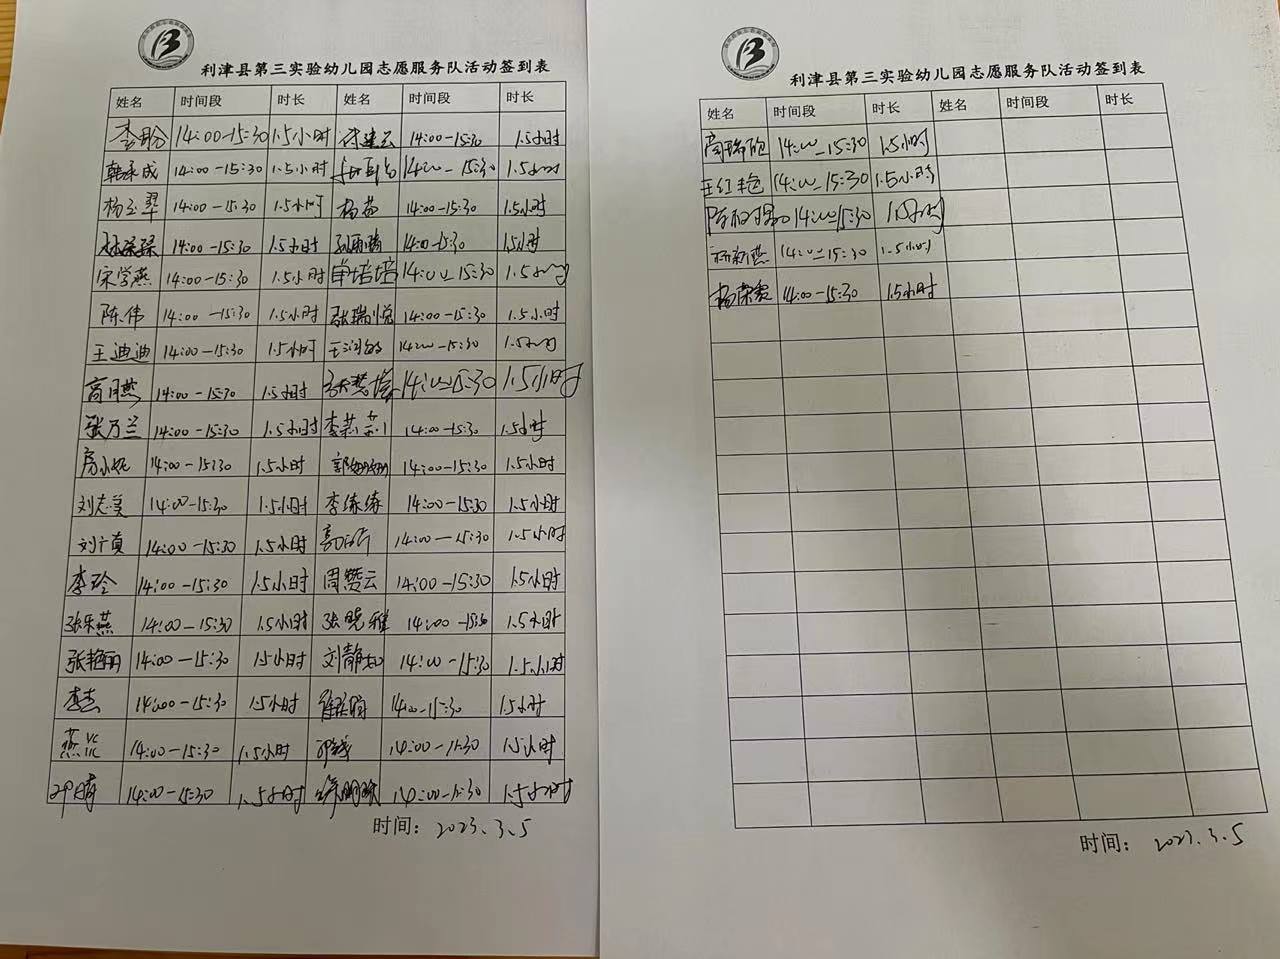 利津县第三实验幼儿园志愿服务队活动签到表
姓名 时间段 时长 姓名 时间段 时长
李盼 14:00-15:30 1.5小时 14:00-15:30 1.5小时
韩承成 14:00-15:30 1.5小时 14:00-15:30 1.5小时
杨玉翠 14:00-15:30 1.5小时 杨茹 14:00-15:30 1.5小时
14:00-15:30 1.5小时 14:00-15:30 1.5小时
宋学燕 14:00-15:30 1.5小时 单培培 14:00-15:30 1.5小时
陈伟 14:00-15:30 1.5小时 张瑞悦 14:00-15:30 1.5小时
王迪迪 14:00-15:30 1.5小时 14:00-15:30 1.5小时
高月燕 14:00-15:30 1.5小时 14:00-15:30 1.5小时
张乃兰 14:00-15:30 1.5小时 李莉莉 14:00-15:30 1.5小时
14:00-15:30 1.5小时 郭姗姗 14:00-15:30 1.5小时
刘志美 14:00-15:30 1.5小时 李练练 14:00-15:30 1.5小时
刘广贞 14:00-15:30 1.5小时 14:00-15:30 1.5小时
李玲 14:00-15:30 1.5小时 周赞云 14:00-15:30 1.5小时
张乐燕 14:00-15:30 1.5小时 张晓雅 14:00-15:30 1.5小时
张艳丽 14:00-15:30 1.5小时 刘静知 14:00-15:30 1.5小时
李杰 14:00-15:30 1.5小时 14:00-15:30 1.5小时
14:00-15:30 1.5小时 14:00-15:30 1.5小时
14:00-15:30 1.5小时 14:00-15:30 1.5小时
时间: 2023.3.5
利津县第三实验幼儿园志愿服务队活动签到表
姓名 时间段 时长 姓名 时间段 时长
14:00-15:30 1.5小时
王红艳 14:00-15:30 1.5小时
14:00-15:30 1.5小时
杨新燕 14:00-15:30 1.5小时
杨荣霞 14:00-15:30 1.5小时
时间: 2023.3.5